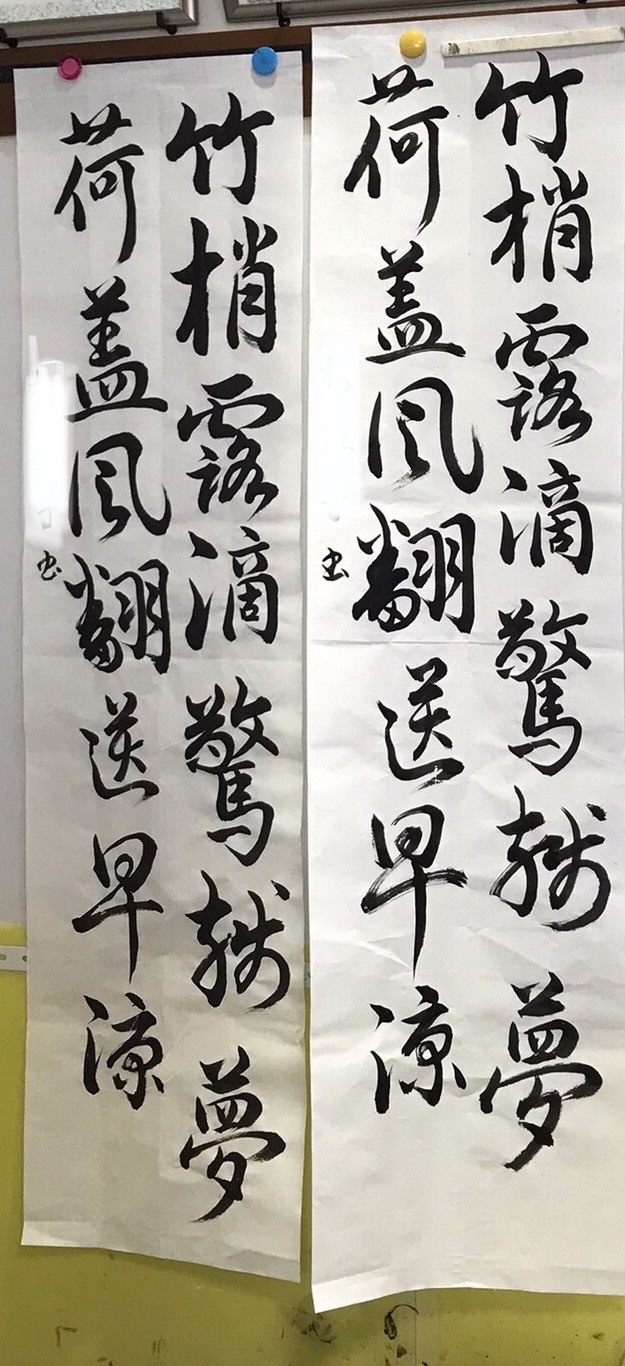 竹梢露滴驚殘夢
荷盖風翻送早涼
书
竹梢露滴驚殘夢
荷盖風翻送早涼
书